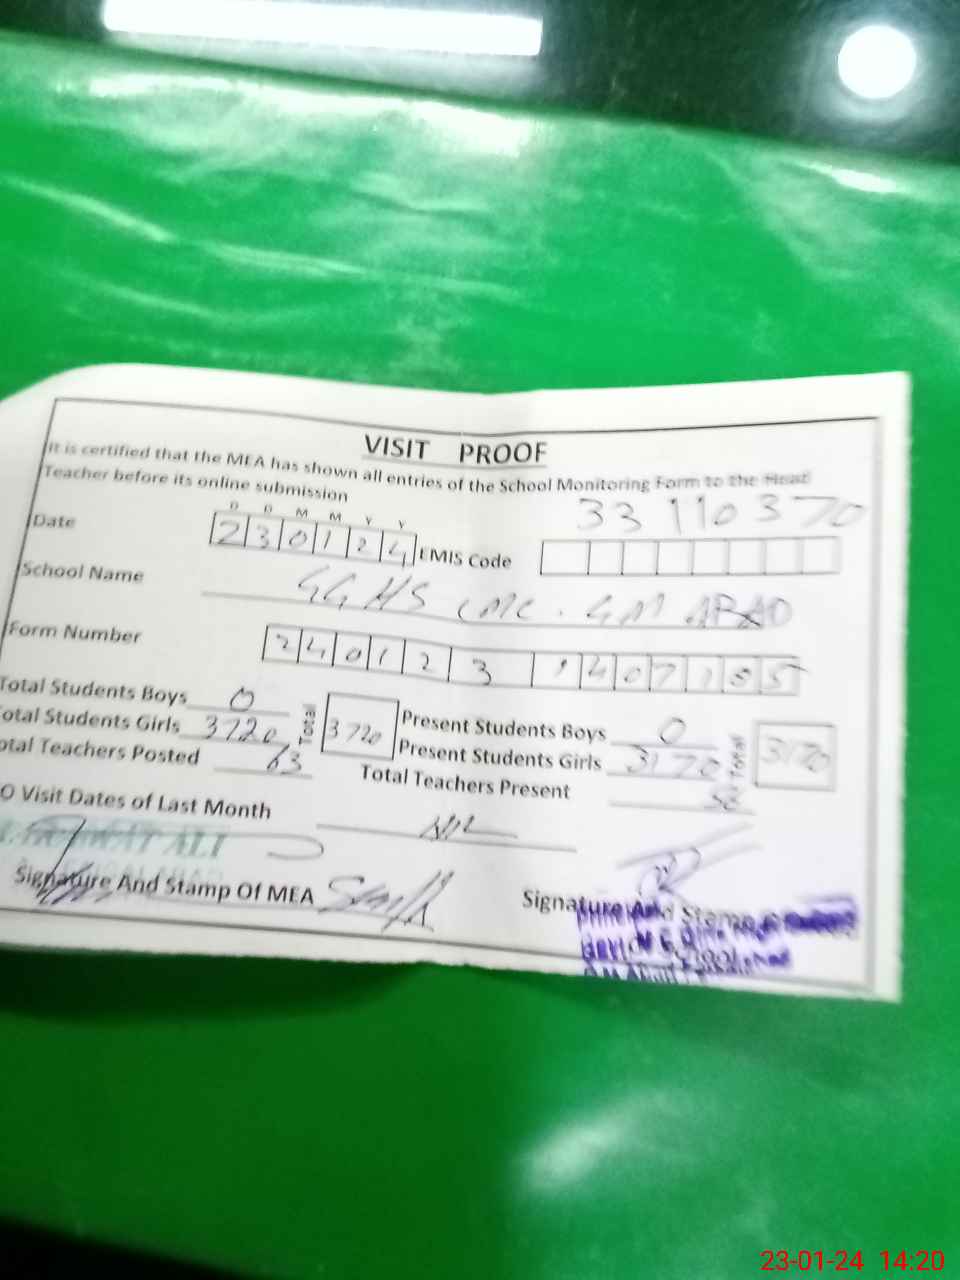 VISIT PROOF
It is certified that the MEA has shown all entries of the School Monitoring Form to the Head
Teacher before its online submission
33110370
D D M M Y Y
Date 230124 EMIS Code
School Name GGHS CMC. GM ABAD
Form Number 240123
Total Students Boys 0
Total Students Girls 3720
Total 3720
Total Teachers Posted 63
Present Students Boys 0
Present Students Girls 3170
Total 3170
Total Teachers Present
O Visit Dates of Last Month Nil
ALI
Signature And Stamp Of MEA
Signature And Stamp
23-01-24 14:20